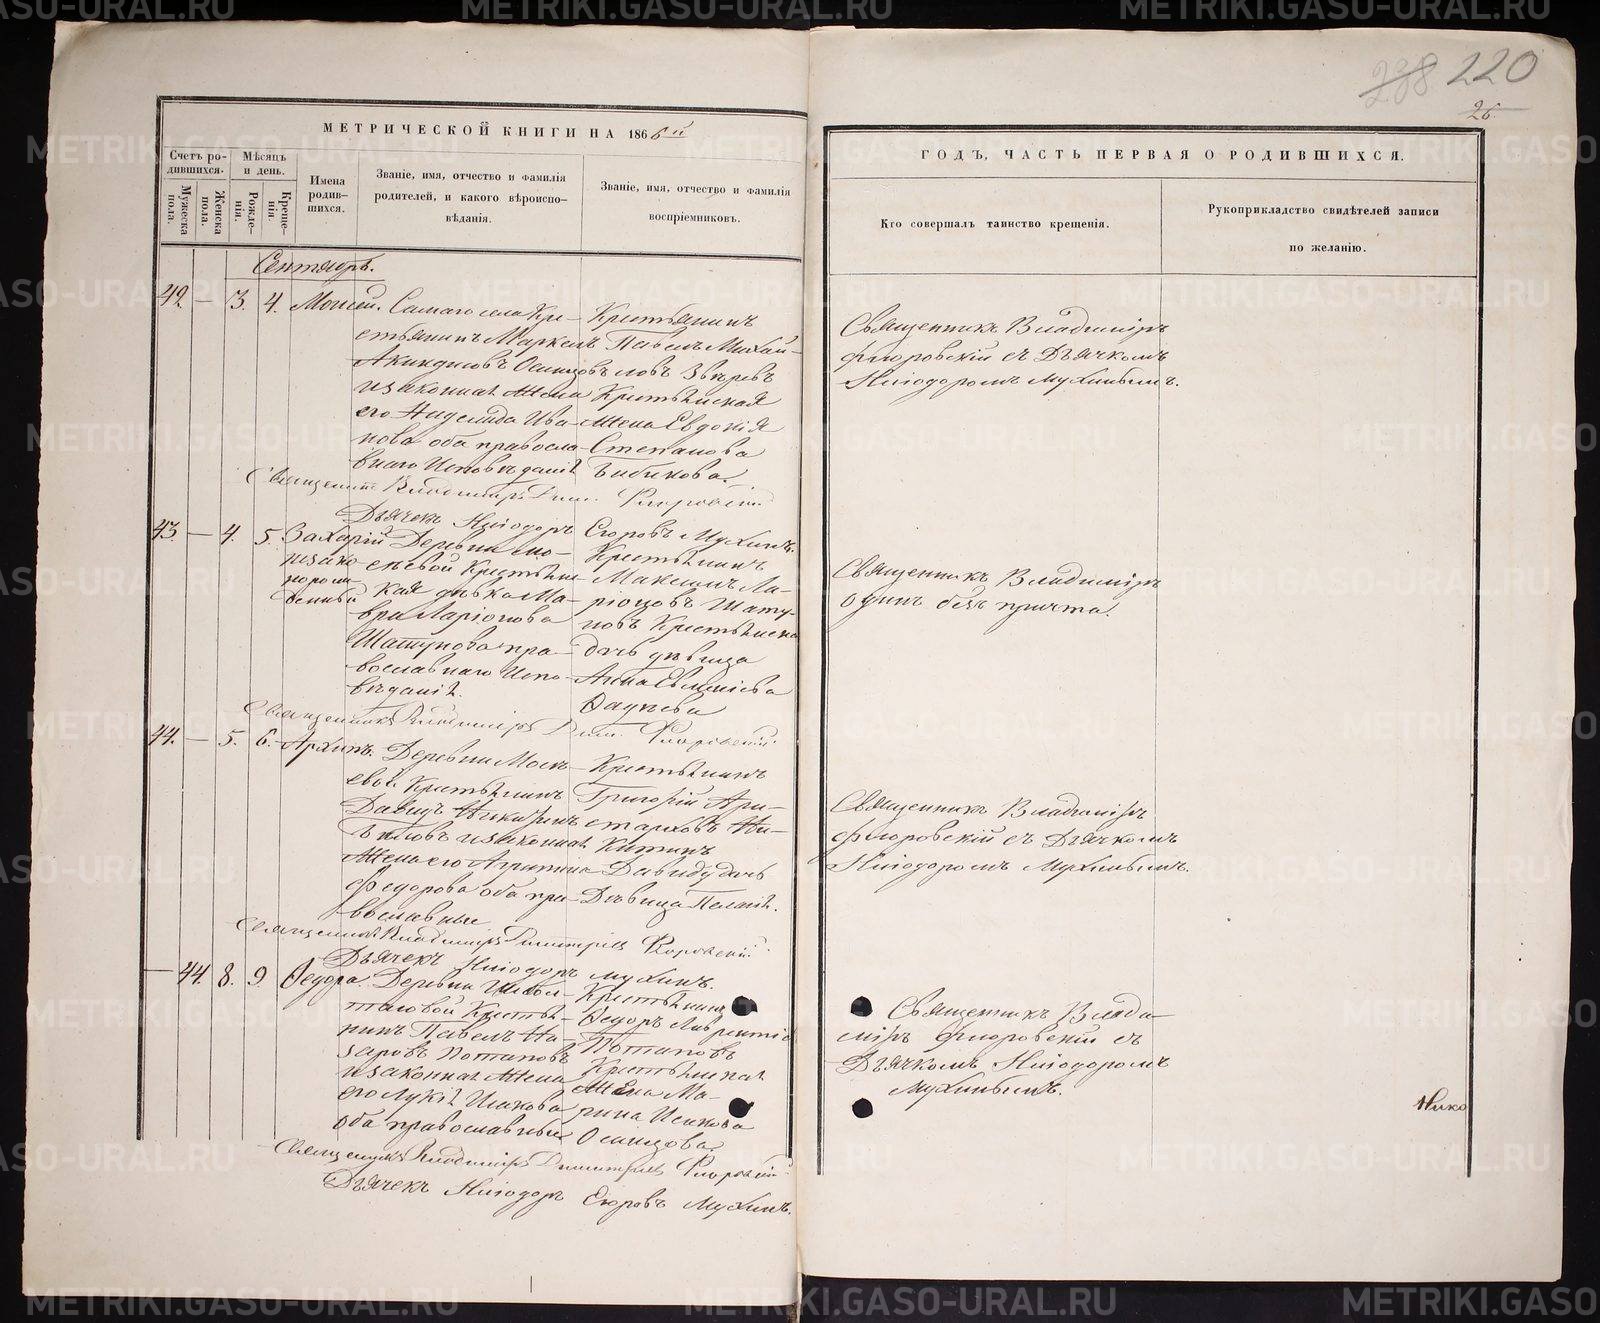 238 220
26
МЕТРИЧЕСКОЙ КНИГИ НА 1866й
ГОДЪ, ЧАСТЬ ПЕРВАЯ О РОДИВШИХСЯ.
Счетъ родившихся.
Мужеска пола.
Женска пола.
Мѣсяцъ и день.
Рожденія.
Крещенія.
Имена родившихся.
Званіе, имя, отчество и фамилія
родителей, и какого вѣроиспо-
вѣданія.
Званіе, имя, отчество и фамилія
воспріемниковъ.
Кто совершалъ таинство крещенія.
Рукоприкладство свидѣтелей записи
по желанію.
Сентябрь.
42. — 3. 4. Моисей.
Самаго села Кре-
стьянинъ Маркелъ
Акиндиновъ Осинцовъ
и законная жена
его Ива-
нова оба правосла-
внаго Исповѣданія
Крестьянинъ
Павелъ Михай-
ловъ Звѣревъ
Крестьянская
жена Евдокія
Степанова
Бибикова.
Священникъ Владиміръ
Флоровскій съ Дьячкомъ
Нилодоромъ Мухинымъ.
Священникъ Владиміръ Дим. Флоровскій
Дьячекъ Нилодоръ Егоровъ Мухинъ.
43. — 4. 5. Захарій
незако-
норож-
денный
Деревни Мо-
сѣевой Крестьян-
кая дѣвка Ма-
вра Ларіонова
Шатунова пра-
вославнаго Испо-
вѣданія.
Крестьянинъ
Максимъ Ла-
ріоновъ Шату-
новъ Крестьянска
дочь дѣвица
Анна
Священникъ Владиміръ
одинъ безъ причта.
Священникъ Владиміръ Дим. Флоровскій
44. — 5. 6. Архипъ.
Деревни Мосѣ-
евой Крестьянинъ
Давидъ
и законная
жена его
Федорова оба пра-
вославные
Крестьянинъ
Григорій Ари-
старховъ Ни-
китинъ
Давиду дочь
Дѣвица Пелагія.
Священникъ Владиміръ
Флоровскій съ Дьячкомъ
Нилодоромъ Мухинымъ.
Священникъ Владиміръ Димитріев Флоровскій
Дьячекъ Нилодоръ Мухинъ.
— 44. 8. 9 Ѳедора.
Деревни
Крестья-
нинъ Павелъ На-
заровъ Потаповъ
и законная жена
его Лукія Исакова
оба православные
Крестьянинъ
Ѳедоръ Лаврентіе
Потаповъ
Крестьянская
жена Ма-
рина Исакова
Осинцова
Священникъ Влади-
міръ Флоровскій съ
Дьячкомъ Нилодоромъ
Мухинымъ.
Нико
Священникъ Владиміръ Димитріев Флоровскій
Дьячекъ Нилодоръ Егоровъ Мухинъ.
METRIKI.GASO-URAL.RU